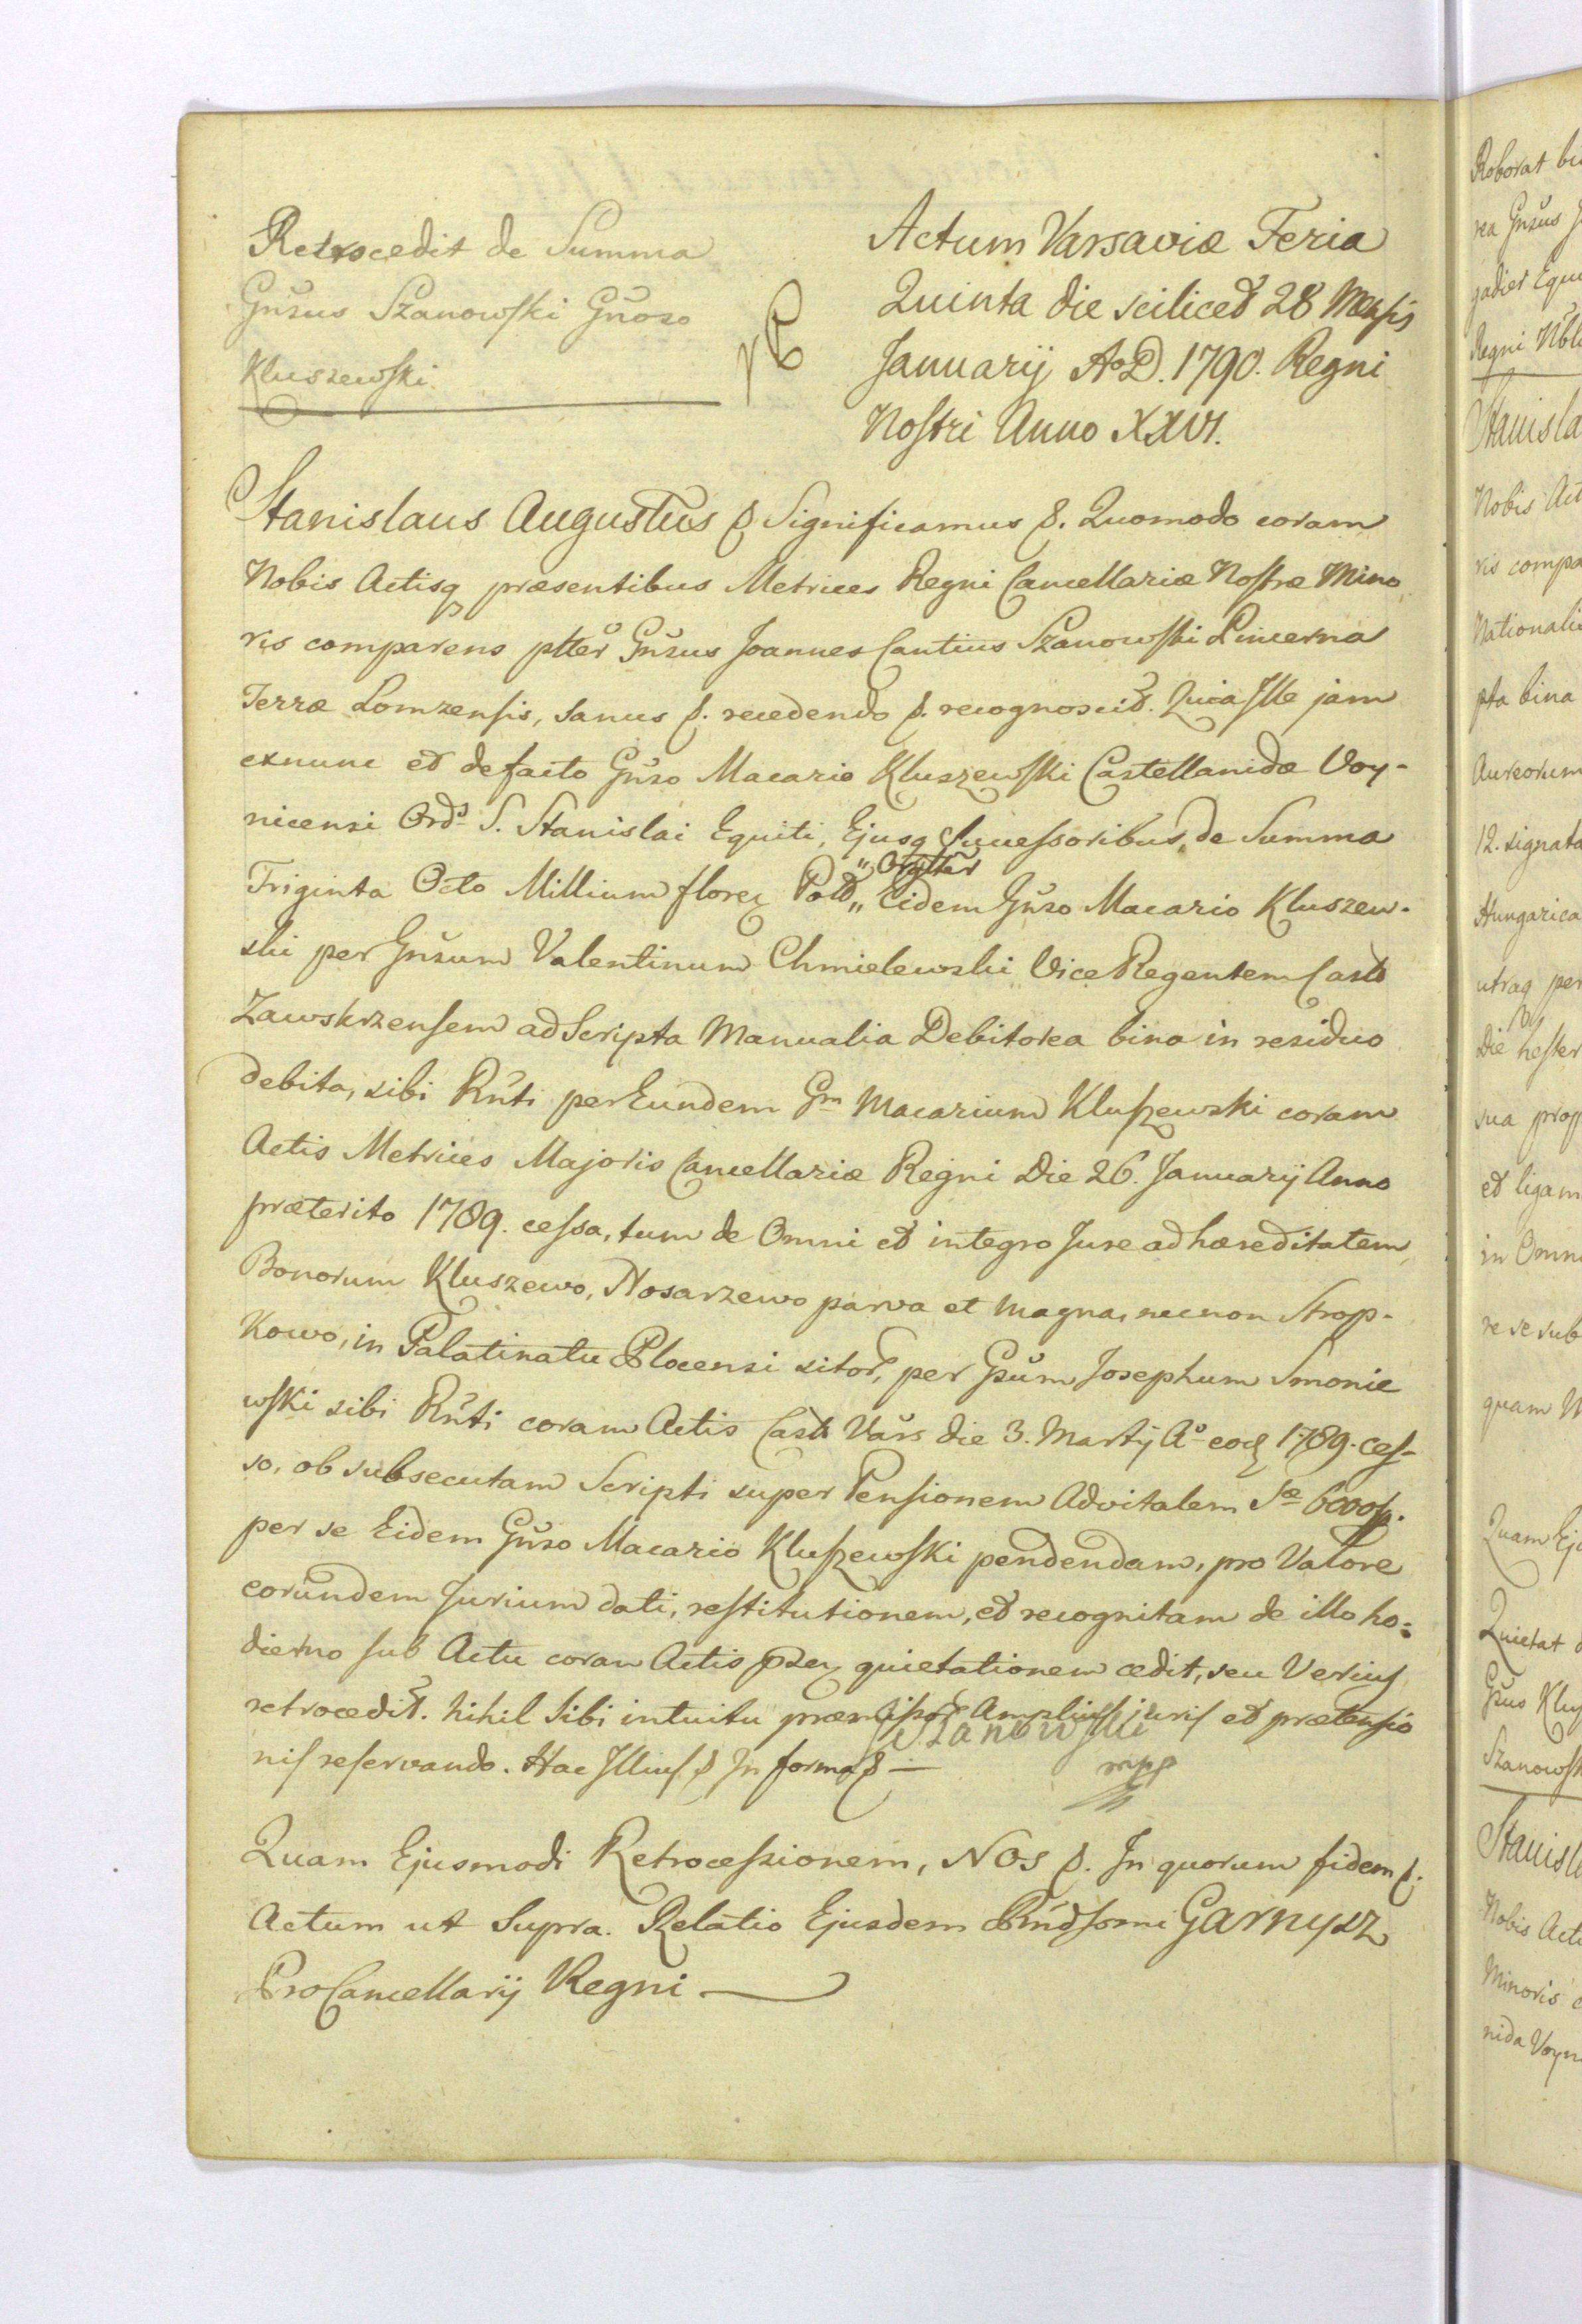 Retrocedit de Summa
Gnsus Szanowski Gnoso
Kluszewski.
Actum Varsaviæ Feria
Quinta die scilicet 28 Mensis
Januarij AoD. 1790. Regni
Nostri Anno XXVI.
Stanislaus Augustus p Significamus p. Quomodo coram
Nobis Actisq præsentibus Metrices Regni Cancellariæ Nostræ Mino
ris comparens ptter Gnsus Joannes Cantius Szanowski Pincerna
Terræ Lomzensis, sanus p. recedendo p. recognoscit. Quia Ille jam
exnunc et defacto Gnso Macario Kluszewski Castellanidæ Voy-
nicensi Ords S. Stanislai Equiti, Ejusq Successoribus, de Summa
Triginta Octo Millium florez Pold „ Orgltter „ Eidem Gnso Macario Kluszew-
ski per Gnsum Valentinum Chmielewski Vice Regentem Cast
Zawskrzensem ad Scripta Manualia Debitorea bina in residuo
debita, sibi Rnti per Eundem Gm Macarium Kluszewski coram
Actis Metrices Majoris Cancellariæ Regni Die 26. Januarij Anno
præterito 1789. cessa, tum de Omni et integro Jure ad hæreditatem
Bonorum Kluszewo, Nosarzewo parva et magna, necnon Strop-
Kowo, in Palatinatu Plocensi sitor, per Gsum Josephum Smonie
wski sibi Rnti coram Actis Cast Vars die 3. Martij Ao eod 1789. ces-
so, ob subsecutam Scripti super Pensionem Advitalem Sæ 6000 fp.
per se Eidem Gnso Macario Kluszewski pendendam, pro Valore
eorundem Jurium dati, restitutionem, et recognitam de illo ho:
dierno sub Actu coram Actis psez quietationem cedit, seu Verius
retrocedit. Nihil Sibi intuitu præmissor Amplius juris et prætensio
nis reservando. Hac Illius p In forma p —
Szanowski
mpp
Quam Ejusmodi Retrocessionem, NOS p. In quorum fidem p.
Actum ut Supra. Relatio Ejusdem Rndssmi Garnysz
ProCancellarij Regni —
Roborat
rea Gnsus
Regni
Stanisla
Nobis Act
ris compa
Nationali
pta bina
Aureorum
12. signata
Hungarica
utraq per
Die hester
sua prop
et ligam
in Omni
re se sub
quam N
Quam Ej
Quietat d
Gsus Klus
Szanowsk
Stanisl
Nobis Acti
Minoris c
nida Voyn